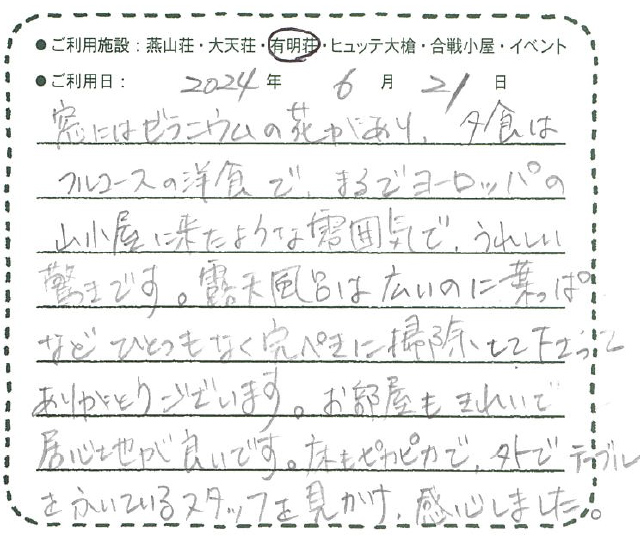 ●ご利用施設：燕山荘・大天荘・有明荘・ヒュッテ大槍・合戦小屋・イベント
●ご利用日： 2024 年 6 月 21 日
窓にはゼラニウムの花があり、夕食は
フルコースの洋食で、まるでヨーロッパの
山小屋に来たような雰囲気で、うれしい
驚きです。露天風呂は広いのに葉っぱ
などひとつもなく完ぺきに掃除して下さって
ありがとうございます。お部屋もきれいで
居心地が良いです。床もピカピカで、外でテーブル
をふいているスタッフを見かけ、感心しました。